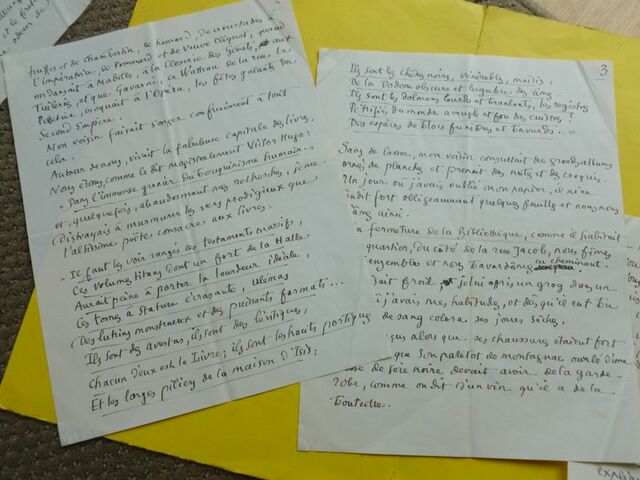 truffes et de chambertin, de homard, de
l'impératrice, de Pommard et de Veuve Cliquot, quand
on dansait à Mabille, à la Closerie des Genêts, aux
Tuileries, et que Gavarni, ce Watteau de la rue Le
Peletier, croquait à l'Opéra, les fêtes galantes du
Second Empire.
Mon voisin faisait songer confusément à tout
cela.
Autour de nous, vivait la fabuleuse capitale des livres.
Nous étions, comme le dit magistralement Victor Hugo :
"Dans l'immense grenier du bouquinisme humain"
et, quelquefois, abandonnant mes recherches, je me
distrayais à murmurer les vers prodigieux que
l'altissime poète consacre aux livres :
"Il faut les voir rangés ces testaments massifs,
Ces volumes titans dont un fort de la Halle
Aurait peine à porter la lourdeur idéale,
Ces tomes à stature écrasante, ulémas
Des lutrins monstrueux et des puissants formats...
Ils sont des avestas, ils sont des lévitiques,
Chacun d'eux est le Livre ; ils sont les hauts portiques
Et les larges piliers de la maison d'Isis ;
3
Ils sont les chênes noirs, vénérables, moisis,
De la Dodone obscure et lugubre des âmes
Ils sont les dolmens lourds et branlants, les registres
Pétrifiés du monde aveugle et fou des cuistres !
Des espèces de blocs funèbres et bavards..."
Sans se lasser, mon voisin consultait de grands albums
ornés de planches et prenait des notes et des croquis.
Un jour où j'avais oublié mon papier, il m'en
fort obligeamment quelques feuilles et nous nous
ainsi.
fermeture de la Bibliothèque, comme il habitait
quartier, du côté de la rue Jacob, nous fîmes
ensemble et nous bavardâmes en cheminant.
froid je lui offris un grog dans un
j'avais mes habitudes, et dès qu'il eut bu
de sang colora ses joues sèches.
alors que ses chaussures étaient fort
que son paletot de montagnac ourlé d'une
de soie noire devait avoir de la garde-
robe, comme on dit d'un vin qu'il a de la
bouteille.